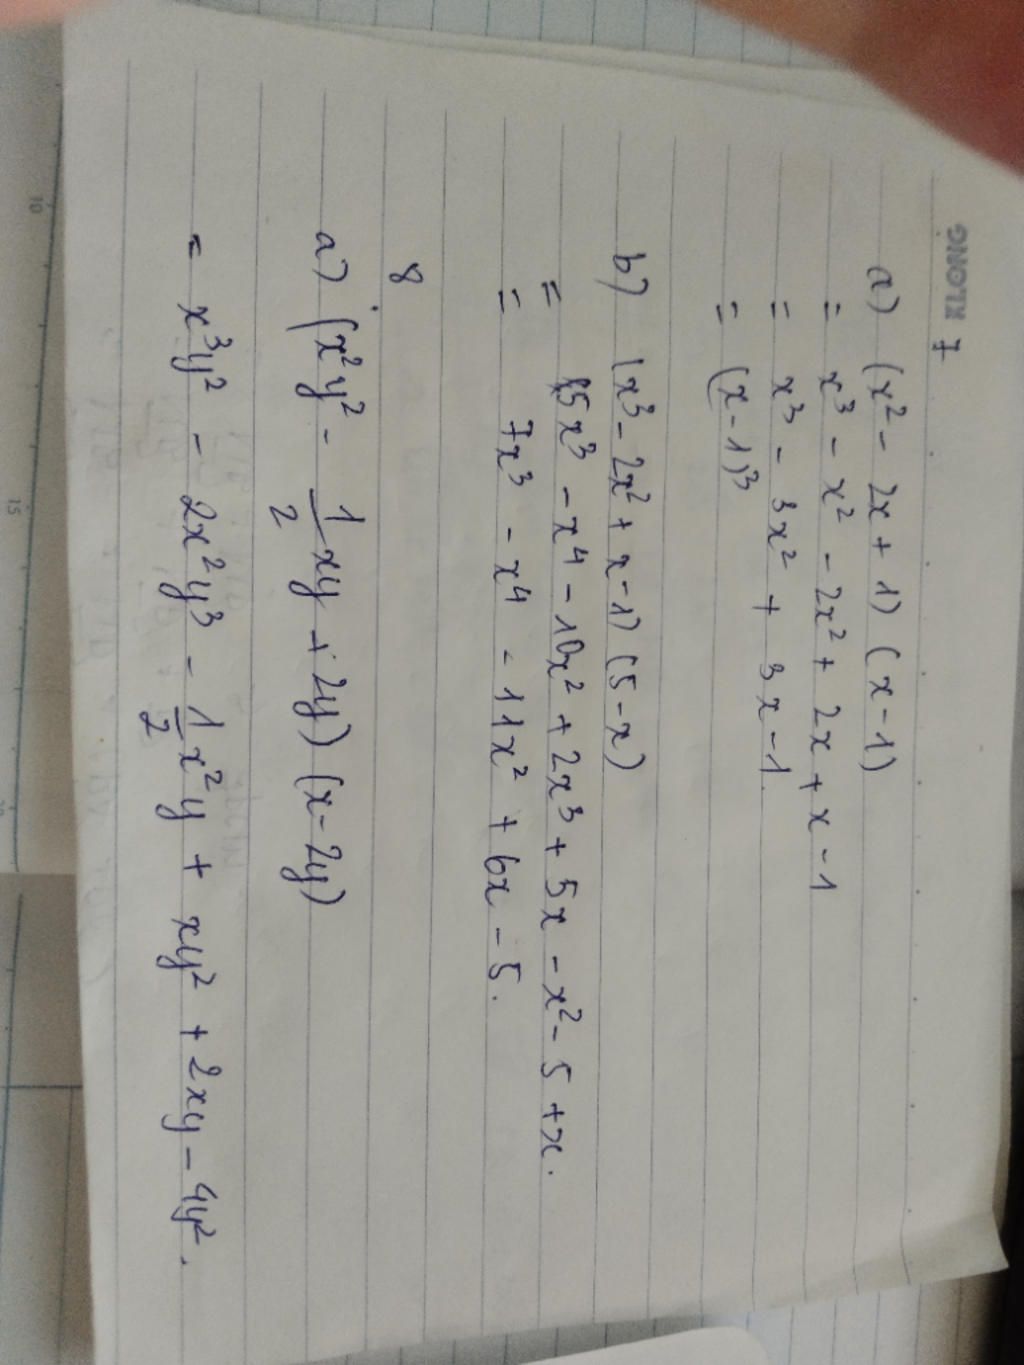 KLONG
7
a) (x² - 2x + 1) (x - 1)
= x³ - x² - 2x² + 2x + x - 1
= x³ - 3x² + 3x - 1.
= (x - 1)³
b) (x³ - 2x² + x - 1) (5 - x)
= 5x³ - x⁴ - 10x² + 2x³ + 5x - x² - 5 + x.
= 7x³ - x⁴ - 11x² + 6x - 5.
8
a) (x²y² - 1/2 xy + 2y) (x - 2y)
= x³y² - 2x²y³ - 1/2 x²y + xy² + 2xy - 4y².
10
15